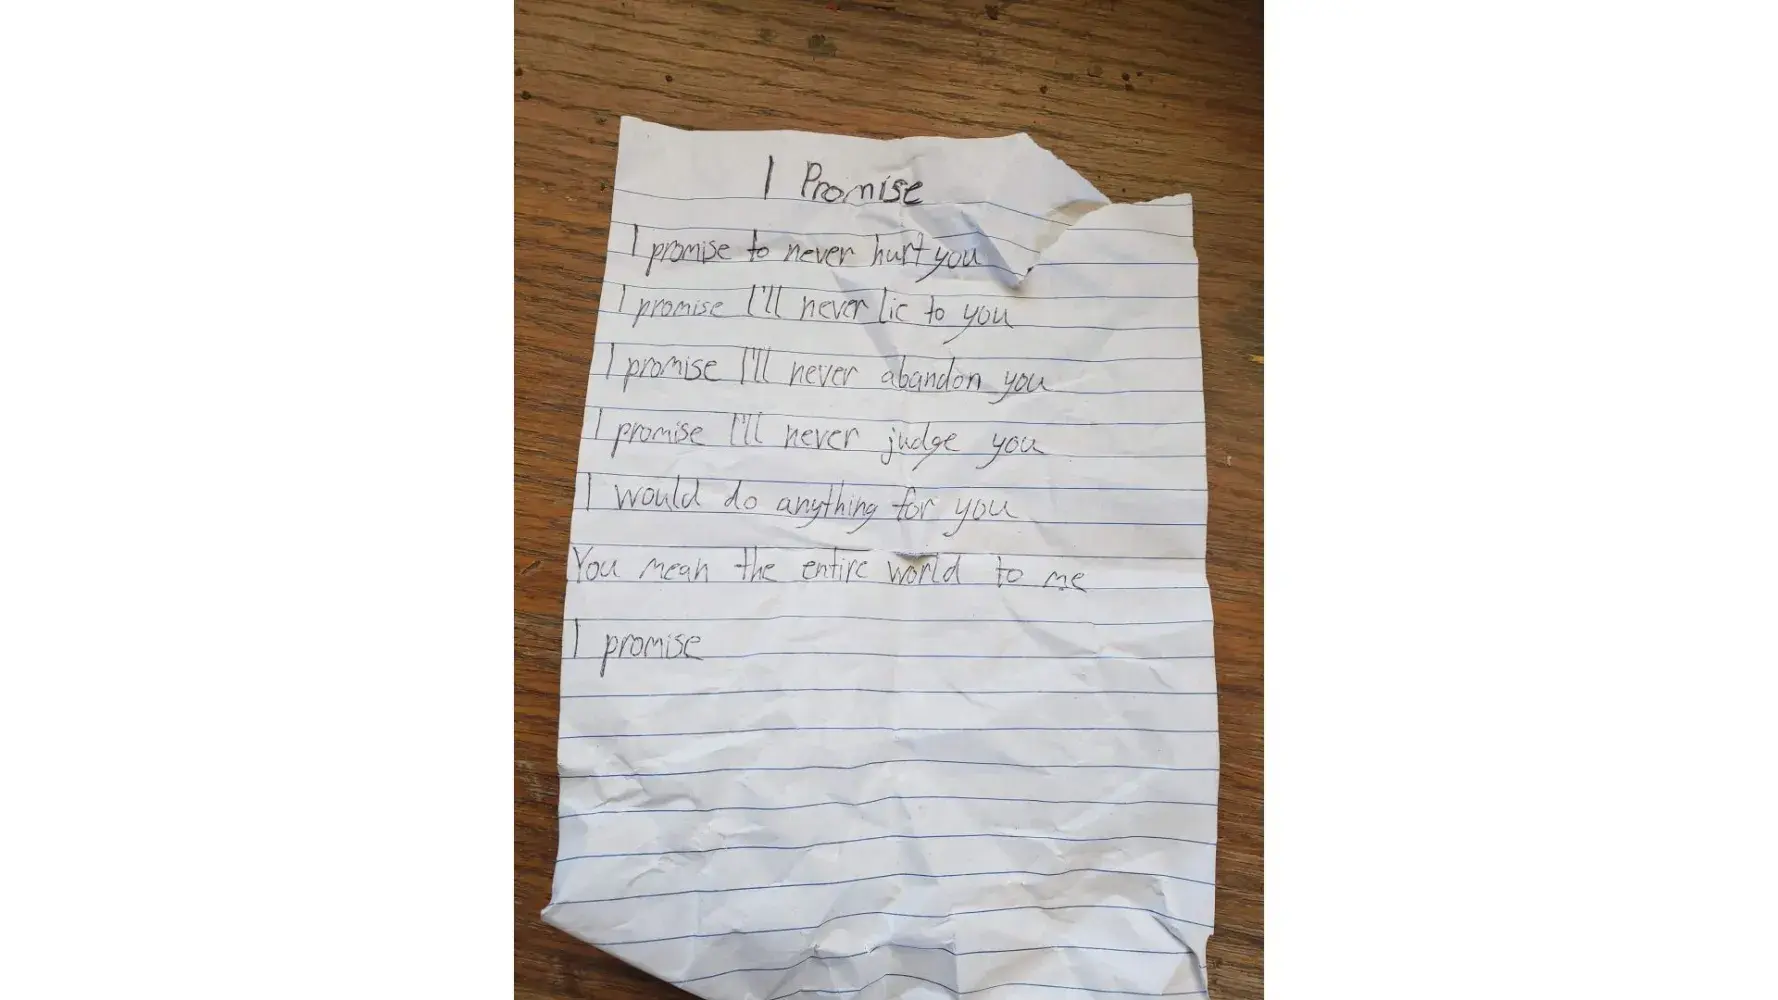 I Promise
I promise to never hurt you
I promise I'll never lie to you
I promise I'll never abandon you
I promise I'll never judge you
I would do anything for you
You mean the entire world to me
I promise